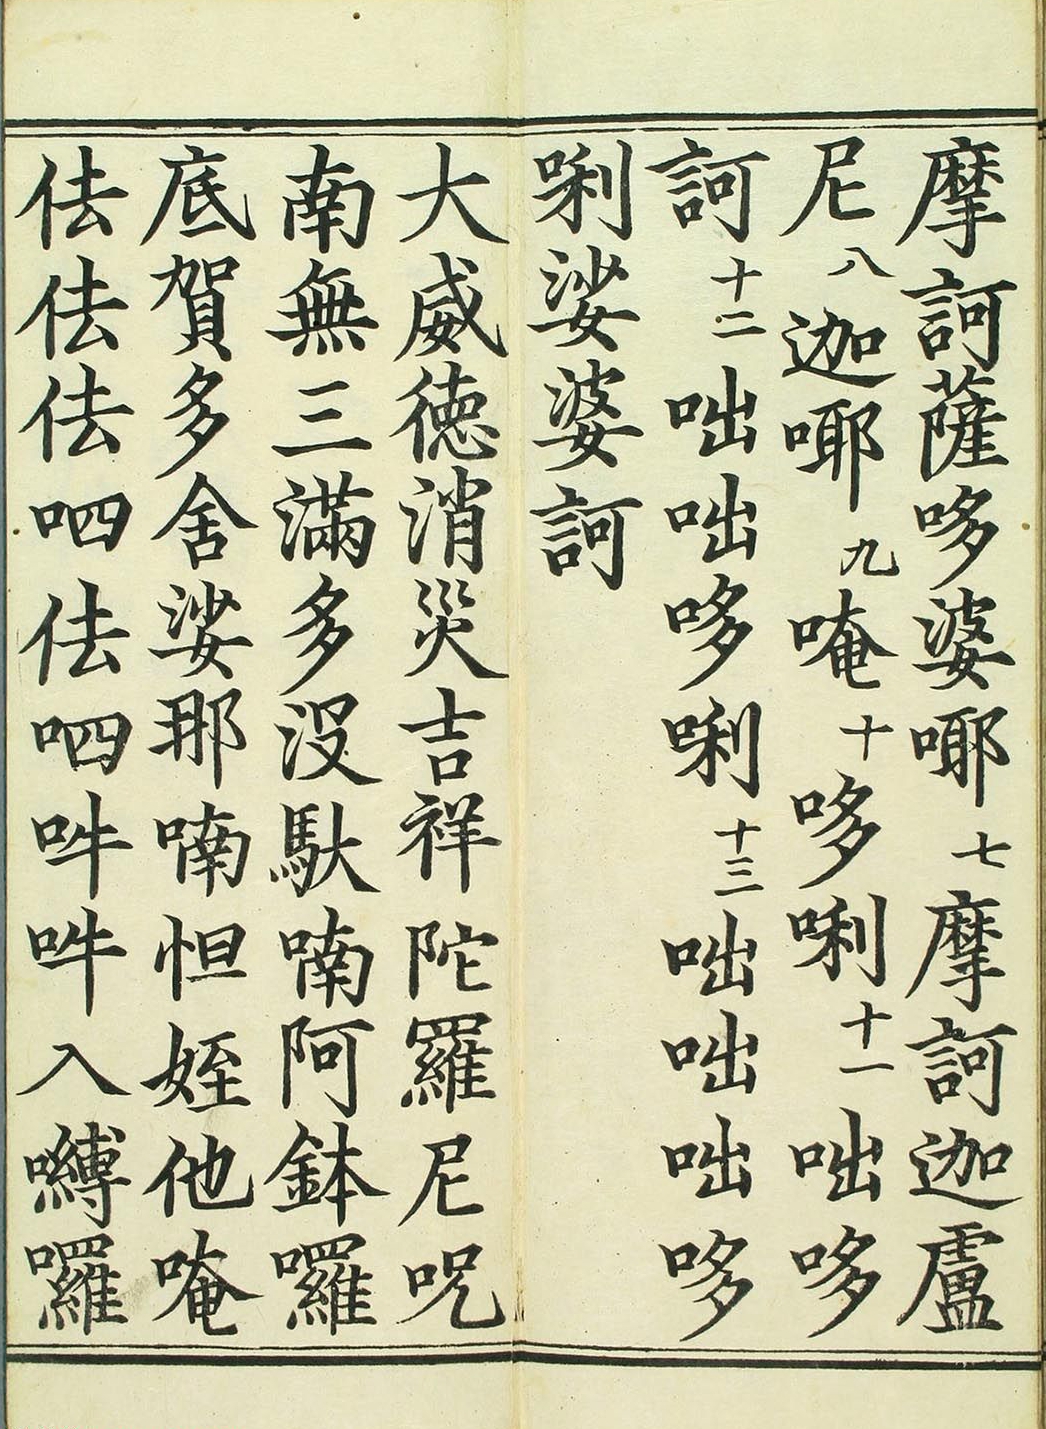 摩訶薩哆婆耶七摩訶迦盧
尼八迦耶九唵十哆唎十一咄哆
訶十二咄咄哆唎十三咄咄咄哆
唎娑婆訶
大威德消災吉祥陀羅尼呪
南無三滿多沒馱喃阿鉢囉
底賀多舍娑那喃怛姪他唵
佉佉佉呬佉呬吽吽入嚩囉